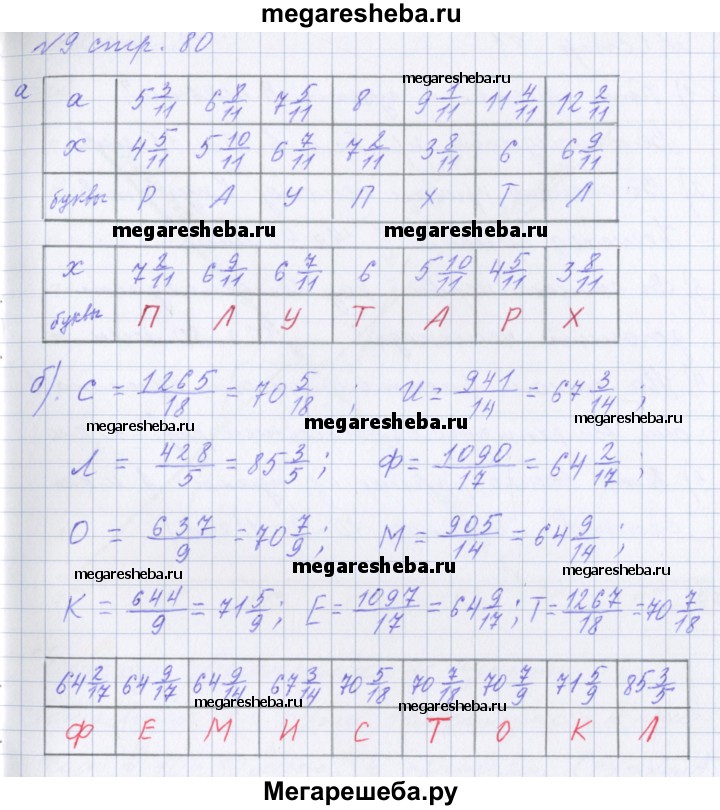 megaresheba.ru
№9 стр. 80
megaresheba.ru
а
а 5 3/11 6 8/11 7 5/11 8 9 1/11 11 4/11 12 2/11
х 4 5/11 5 10/11 6 7/11 7 2/11 3 8/11 6 6 9/11
буквы Р А У П Х Т Л
megaresheba.ru megaresheba.ru
х 7 2/11 6 9/11 6 7/11 6 5 10/11 4 5/11 3 8/11
буквы П Л У Т А Р Х
б). С = 1265/18 = 70 5/18 ; И = 941/14 = 67 3/14 ;
megaresheba.ru megaresheba.ru megaresheba.ru
Л = 428/5 = 85 3/5 ; Ф = 1090/17 = 64 2/17 ;
megaresheba.ru megaresheba.ru
О = 637/9 = 70 7/9 ; М = 905/14 = 64 9/14 ;
megaresheba.ru megaresheba.ru megaresheba.ru
К = 644/9 = 71 5/9 ; Е = 1097/17 = 64 9/17 ; Т = 1267/18 = 70 7/18
64 2/17 64 9/17 64 9/14 67 3/14 70 5/18 70 7/18 70 7/9 71 5/9 85 3/5
megaresheba.ru megaresheba.ru
Ф Е М И С Т О К Л
Мегарешеба.ру